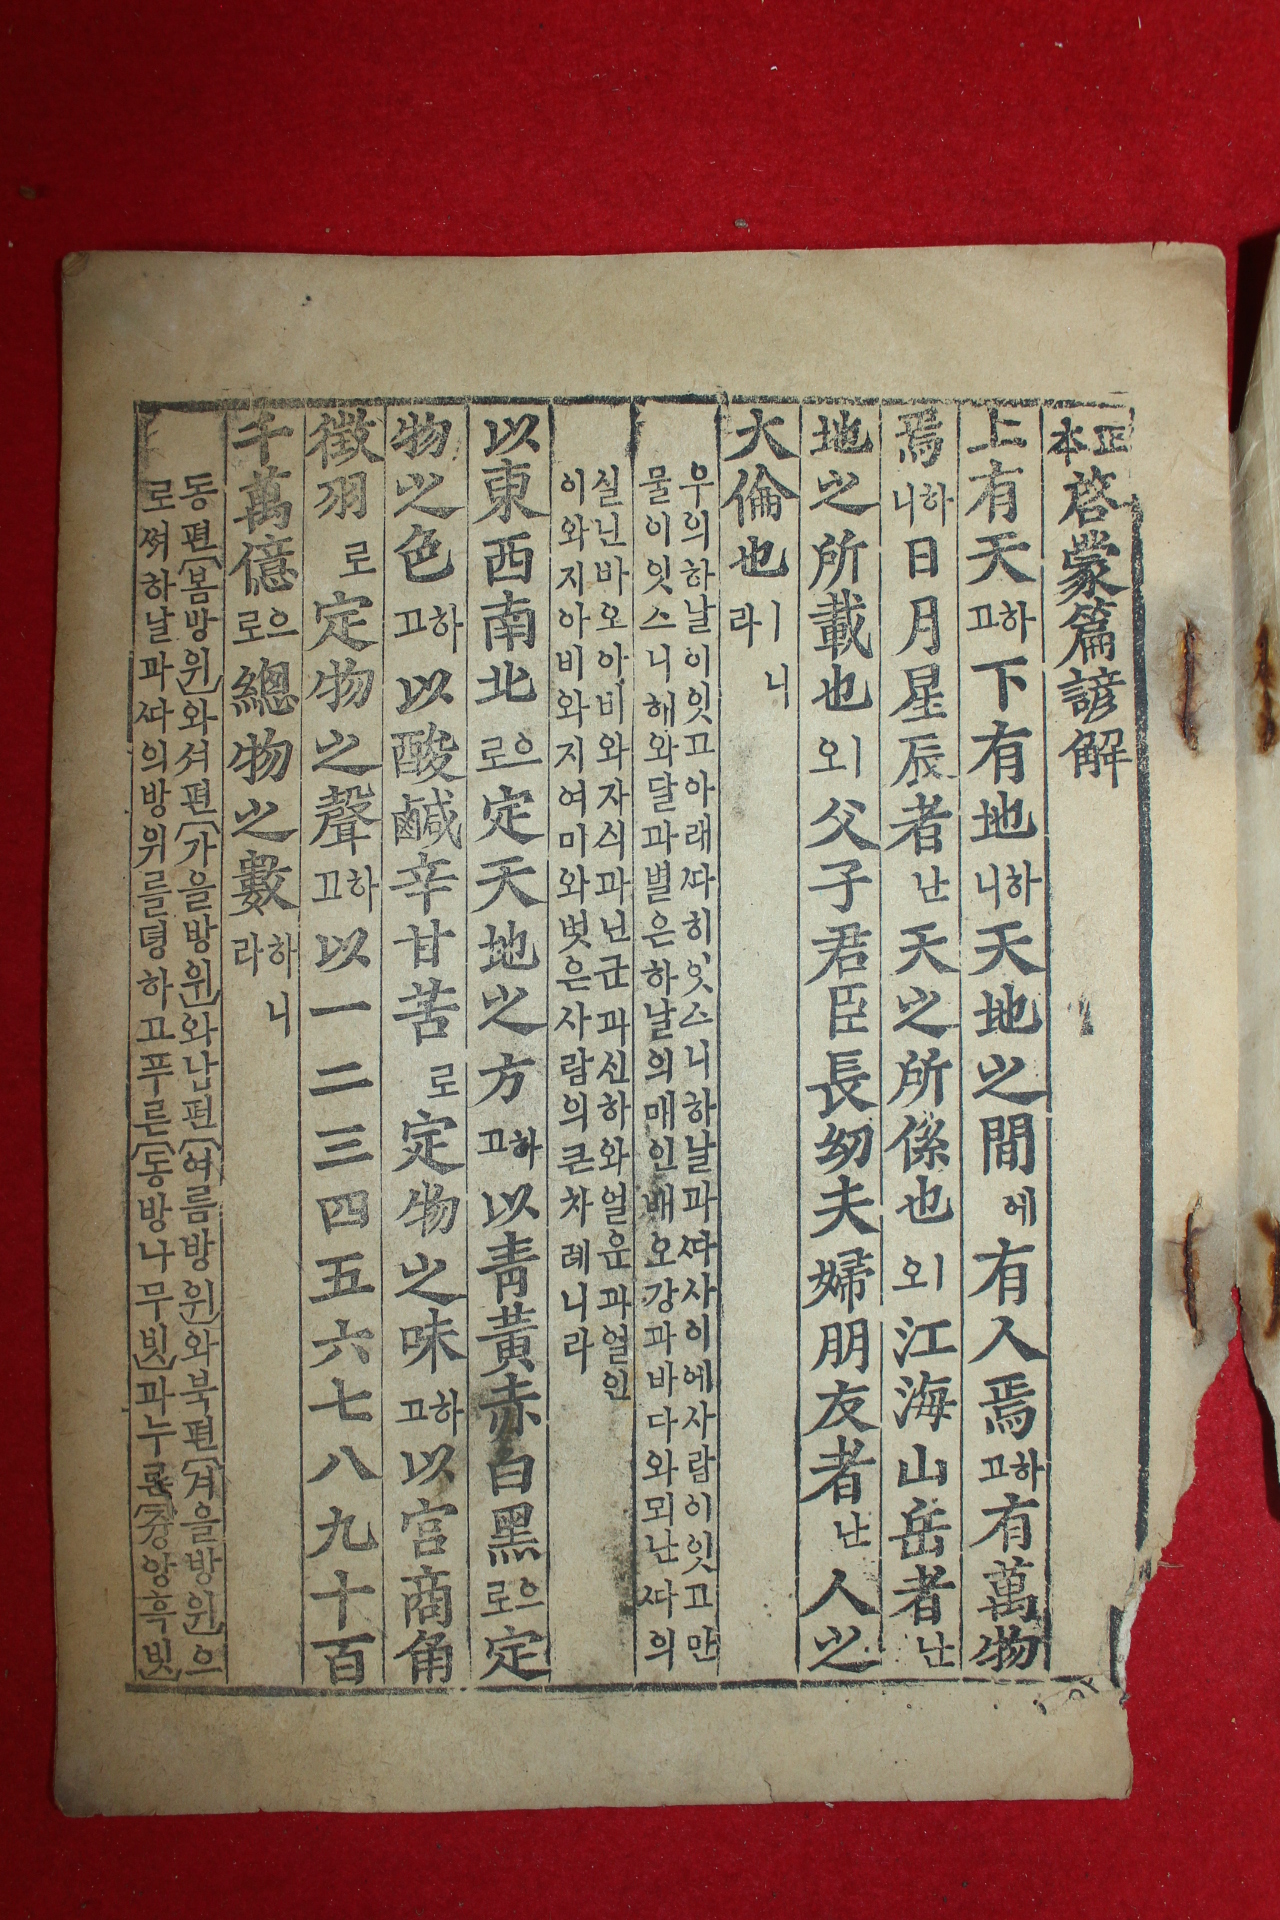 正本 啓蒙篇諺解
上有天하고下有地하니天地之間에有人焉하고有萬物
焉하니日月星辰者난天之所係也오江海山岳者난
地之所載也오父子君臣長幼夫婦朋友者난人之
大倫也ㅣ니라
우의하날이잇고아래ᄯᅡ히잇스니하날과ᄯᅡ사이에사람이잇고만
물이잇스니해와달과별은하날의매인배오강과바다와뫼난ᄯᅡ의
실닌바오아비와자식과닌군과신하와얼운과얼인
이와지아비와지여미와벗은사람의큰차례니라
以東西南北으로定天地之方하고以靑黃赤白黑으로定
物之色하고以酸鹹辛甘苦로定物之味하고以宮商角
徵羽로定物之聲하고以一二三四五六七八九十百
千萬億으로總物之數하니라
동편(봄방위)와셔편(가을방위)와남편(여름방위)와북편(겨을방위)으
로ᄶᅥ하날과ᄯᅡ의방위를뎡하고푸른(동방나무빗)과누른(중앙흑빗)